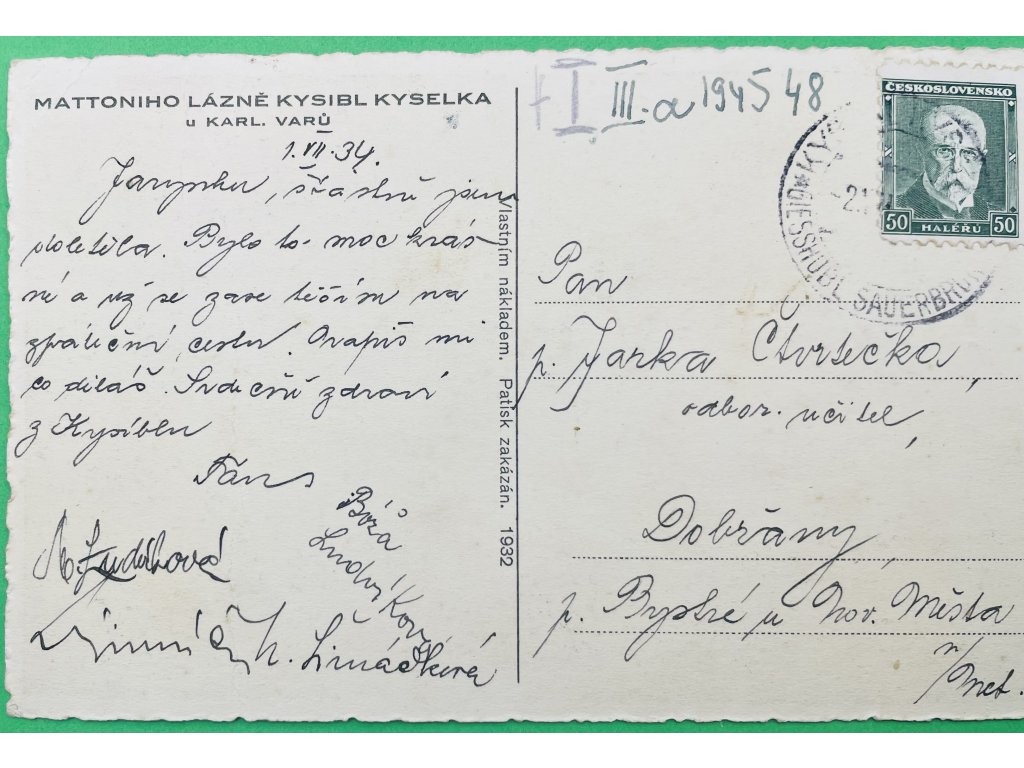 MATTONIHO LÁZNĚ KYSIBL KYSELKA
u KARL. VARŮ
1. VII. 34.
Jarynku, šťastně jsem
doletěla. Bylo to moc krás
né a už se zase těším na
zpáteční cestu. Napiš mi
co děláš. Srdečně zdraví
z Kysiblu
Ludvíková
Boža
Ludvíková
Šimáčková
Vlastním nákladem. Patisk zakázán. 1932
I III.a 1945 48
ČESKOSLOVENSKO
50 HALÉŘŮ 50
GIESSHÜBL SAUERBRUNN
Pan
p. Jarka Čtvrtečka,
odbor. učitel,
Dobřany
p. Bystré u Nov. Města
n/Met.